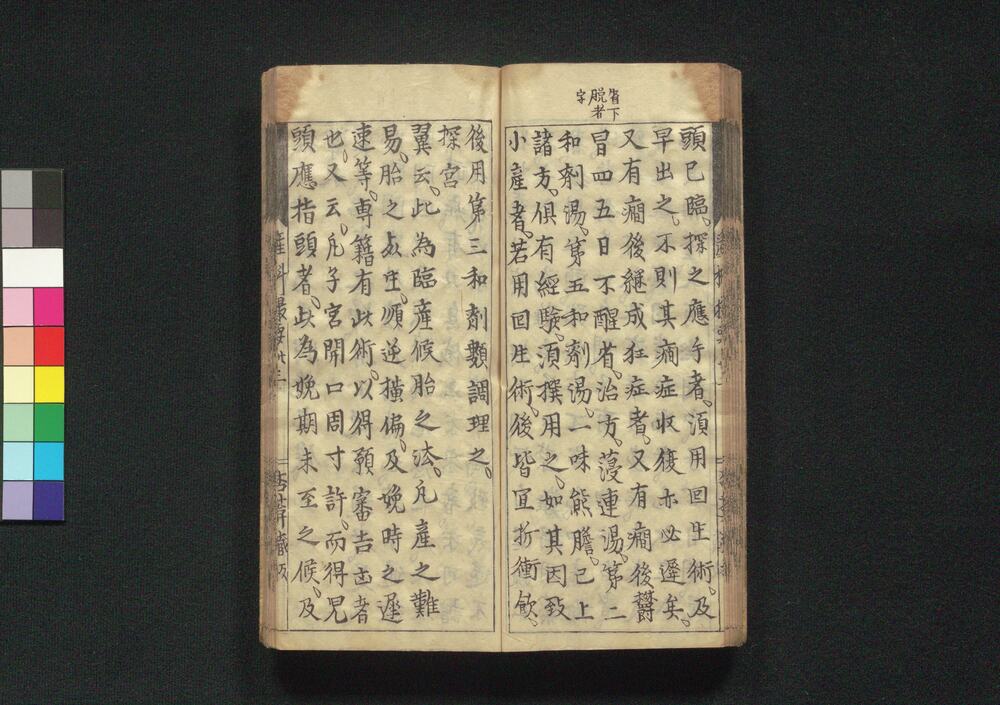 省下
脱者
字
頭已臨。探之應乎者。須用回生術。及
早出之。不則其痾症收復亦必遲矣。
又有癇後継成狂症者。又有癇後欝
冒四五日不醒省。治方。蔆連湯。第二
和剤湯。第五和劑湯。一味熊膽。已上
諸方。俱有經驗。須撰用之。如其因致
小產者。若用回生術。後皆宜折衝飲。
後用第三和劑類調理之。
探宮
翼云。此為臨產候胎之法。凡產之難
易。胎之死生。順逆横偏。及娩時之遲
速等。専籍有此術。以得預審吉凶者
也。又云。凡子宮開口周寸許。而得兒
頭應指頭者。此為娩期未至之候。及